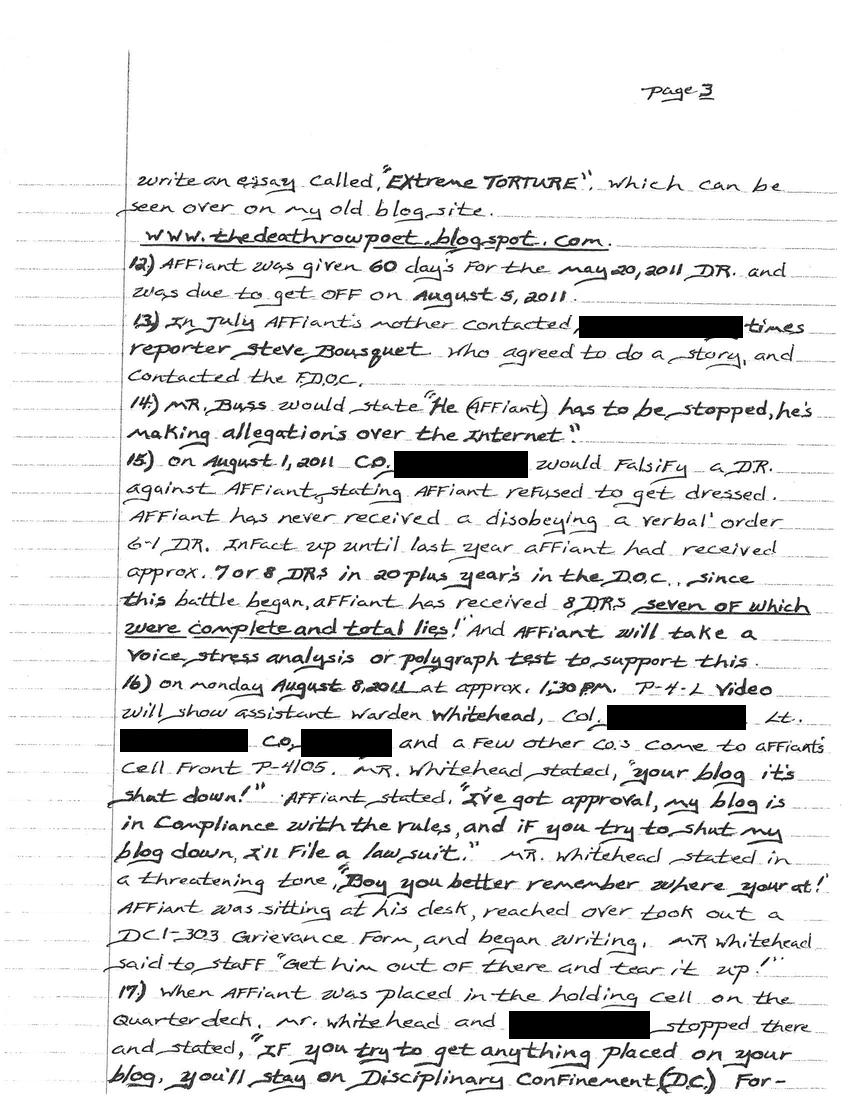 Page 3
write an essay called, "EXtreme TORTURE". which can be
seen over on my old blog site.
www.thedeathrowpoet.blogspot.com.
12.) AFFiant was given 60 day's For the may 20, 2011 DR. and
was due to get OFF on August 5, 2011.
13.) In July AFFiant's mother contacted, times
reporter Steve Bousquet who agreed to do a story, and
contacted the F.D.O.C.
14.) MR. Buss would state "He (AFFiant) has to be stopped, he's
making allegation's over the Internet".
15.) on August 1, 2011 CO. would FalsiFy a DR.
against AFFiant, stating AFFiant reFused to get dressed.
AFFiant has never received a disobeying a verbal order
6-1 DR. InFact up until last year aFFiant had received
approx. 7 or 8 DRs in 20 plus year's in the D.O.C., since
this battle began, aFFiant has received 8 DRs seven oF which
were complete and total lies! And AFFiant will take a
Voice stress analysis or polygraph test to support this.
16.) on monday August 8, 2011 at approx. 1:30 PM. P-4-L Video
will show assistant warden Whitehead, Col. Lt.
CO, and a Few other CO.'s come to aFFiant's
Cell Front P-4105. MR. Whitehead stated, "your blog it's
shut down!" AFFiant stated, "I've got approval, my blog is
in Compliance with the rules, and iF you try to shut my
blog down, I'll File a lawsuit." MR. Whitehead stated in
a threatening tone, "Boy you better remember where your at!"
AFFiant was sitting at his desk, reached over took out a
DC1-303 Grievance Form, and began writing. MR Whitehead
said to staFF "Get him out oF there and tear it up!"
17.) When AFFiant was placed in the holding Cell on the
Quarterdeck, mr. whitehead and stopped there
and stated, "IF you try to get anything placed on your
blog, you'll stay on Disciplinary ConFinement (D.C.) For-